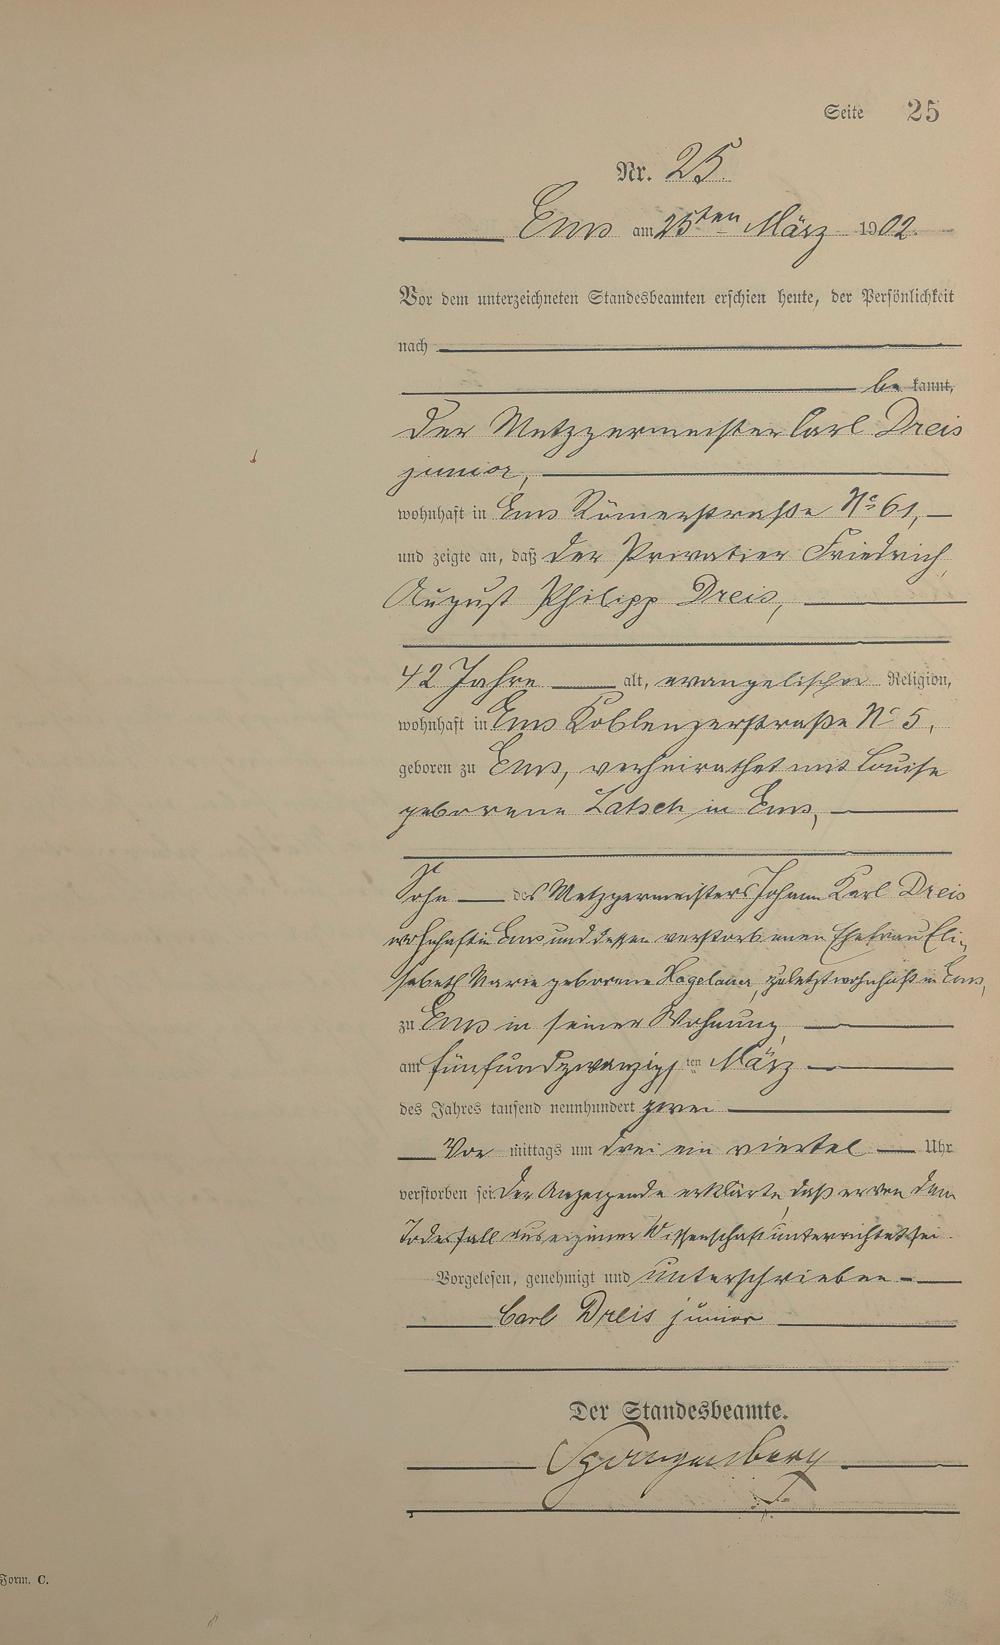 Seite 25
Nr. 25.
Ems am 25ten März 1902.
Vor dem unterzeichneten Standesbeamten erschien heute, der Persönlichkeit
nach
be kannt,
der Metzgermeister Carl Dreis
junior,
wohnhaft in Ems Römerstraße No 61,
und zeigte an, daß der Privatier Friedrich
August Philipp Dreis,
42 Jahre alt, evangelischer Religion,
wohnhaft in Ems Koblenzerstraße No 5,
geboren zu Ems, verheirathet mit Louise
geborene Latsch in Ems,
Sohn des Metzgermeisters Johann Karl Dreis
wohnhaft in Ems und dessen verstorbenen Ehefrau Eli-
sabeth Marie geborene Hagelauer, zuletzt wohnhaft in Ems,
zu Ems in seiner Wohnung,
am fünfundzwanzigsten März
des Jahres tausend neunhundert zwei
Vor mittags um drei ein viertel Uhr
verstorben sei. Der Anzeigende erklärte, daß er von dem
Todesfall aus eigener Wissenschaft unterrichtet sei.
Vorgelesen, genehmigt und unterschrieben
Carl Dreis junior
Der Standesbeamte.
Spangenberg
Form. C.